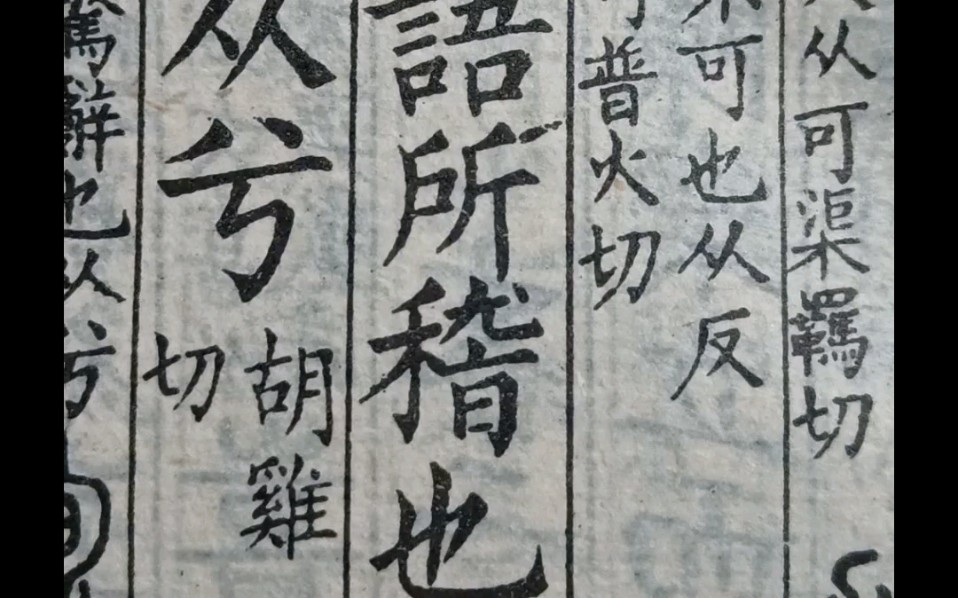 从可渠羈切
可也从反
普火切
語所稽也
从兮胡雞
切
也从兮